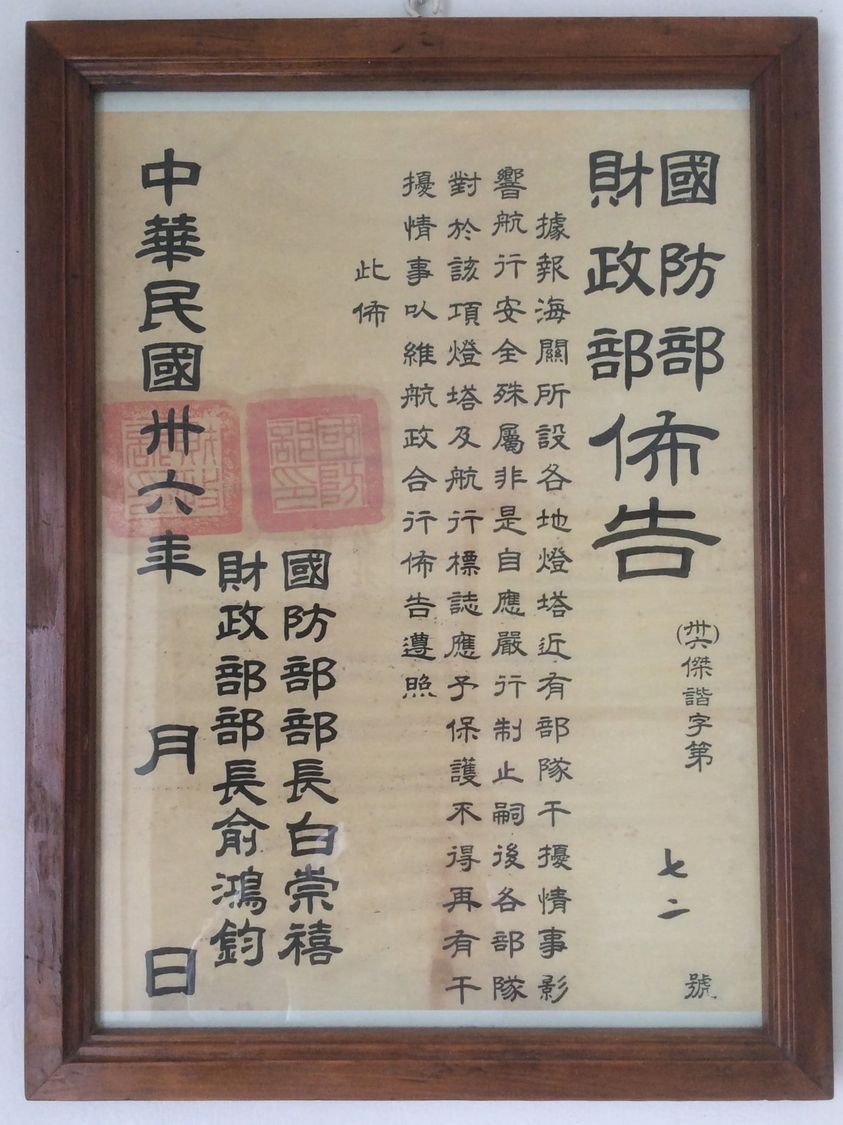 國防部
財政部
佈告
(卅六)傑諧字第 七二 號
據報海關所設各地燈塔近有部隊干擾情事影
響航行安全殊屬非是自應嚴行制止嗣後各部隊
對於該項燈塔及航行標誌應予保護不得再有干
擾情事以維航政合行佈告遵照
此佈
國防部部長白崇禧
財政部部長俞鴻鈞
中華民國卅六年 月 日
國防部印
財政部印